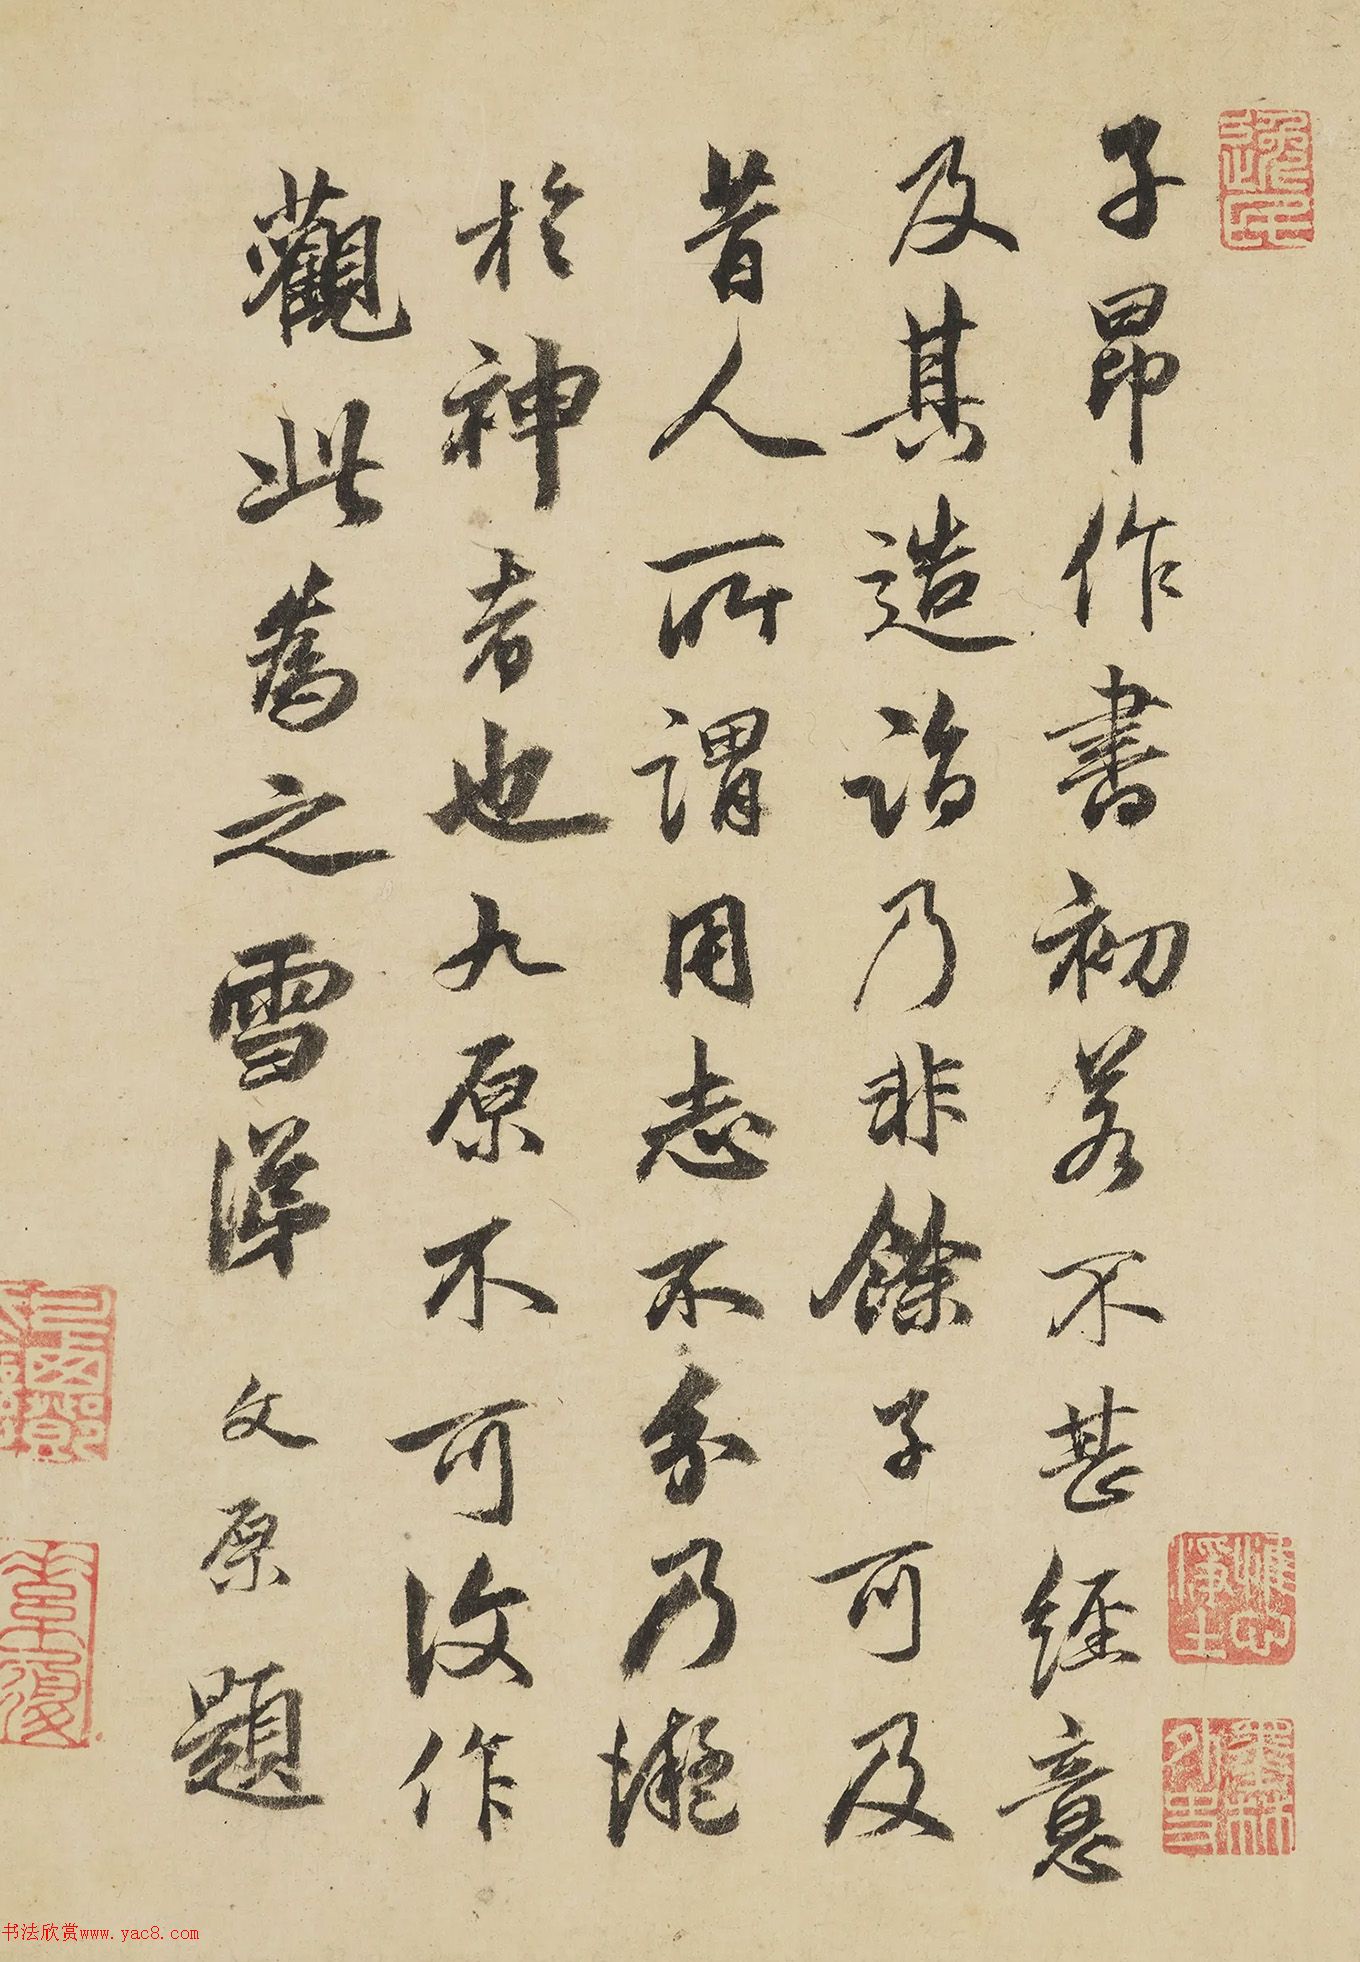 子昂作書初若不甚經意
及其造詣乃非餘子可及
昔人所謂用志不分乃擬
於神者也九原不可復作
觀此為之雪涕文原題
惟心淨土
书法欣赏www.yac8.com